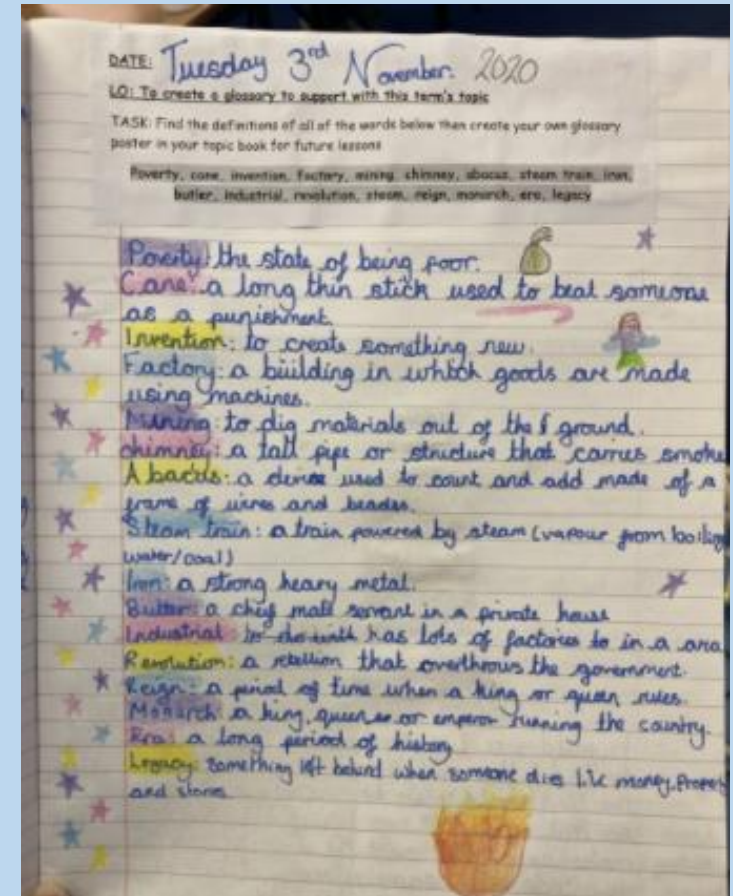 DATE: Tuesday 3rd November. 2020
LO: To create a glossary to support with this term's topic
TASK: Find the definitions of all of the words below then create your own glossary
poster in your topic book for future lessons
Poverty, cane, invention, factory, mining, chimney, abacus, steam train, iron,
butler, industrial, revolution, steam, reign, monarch, era, legacy
Poverty: the state of being poor.
Cane: a long thin stick used to beat someone
as a punishment.
Invention: to create something new.
Factory: a building in which goods are made
using machines.
Mining: to dig materials out of the ground.
chimney: a tall pipe or structure that carries smoke
Abacus: a device used to count and add made of a
frame of wires and beades.
Steam train: a train powered by steam (vapour from boiling
water/coal)
Iron: a strong heavy metal.
Butler: a chief male servant in a private house
Industrial: has lots of factories to in a area
Revolution: a rebellion that overthrows the government.
Reign: a period of time when a king or queen rules.
Monarch: a king, queen or emperor running the country.
Era: a long period of history
Legacy: something left behind when someone dies like money, Propert
and stories